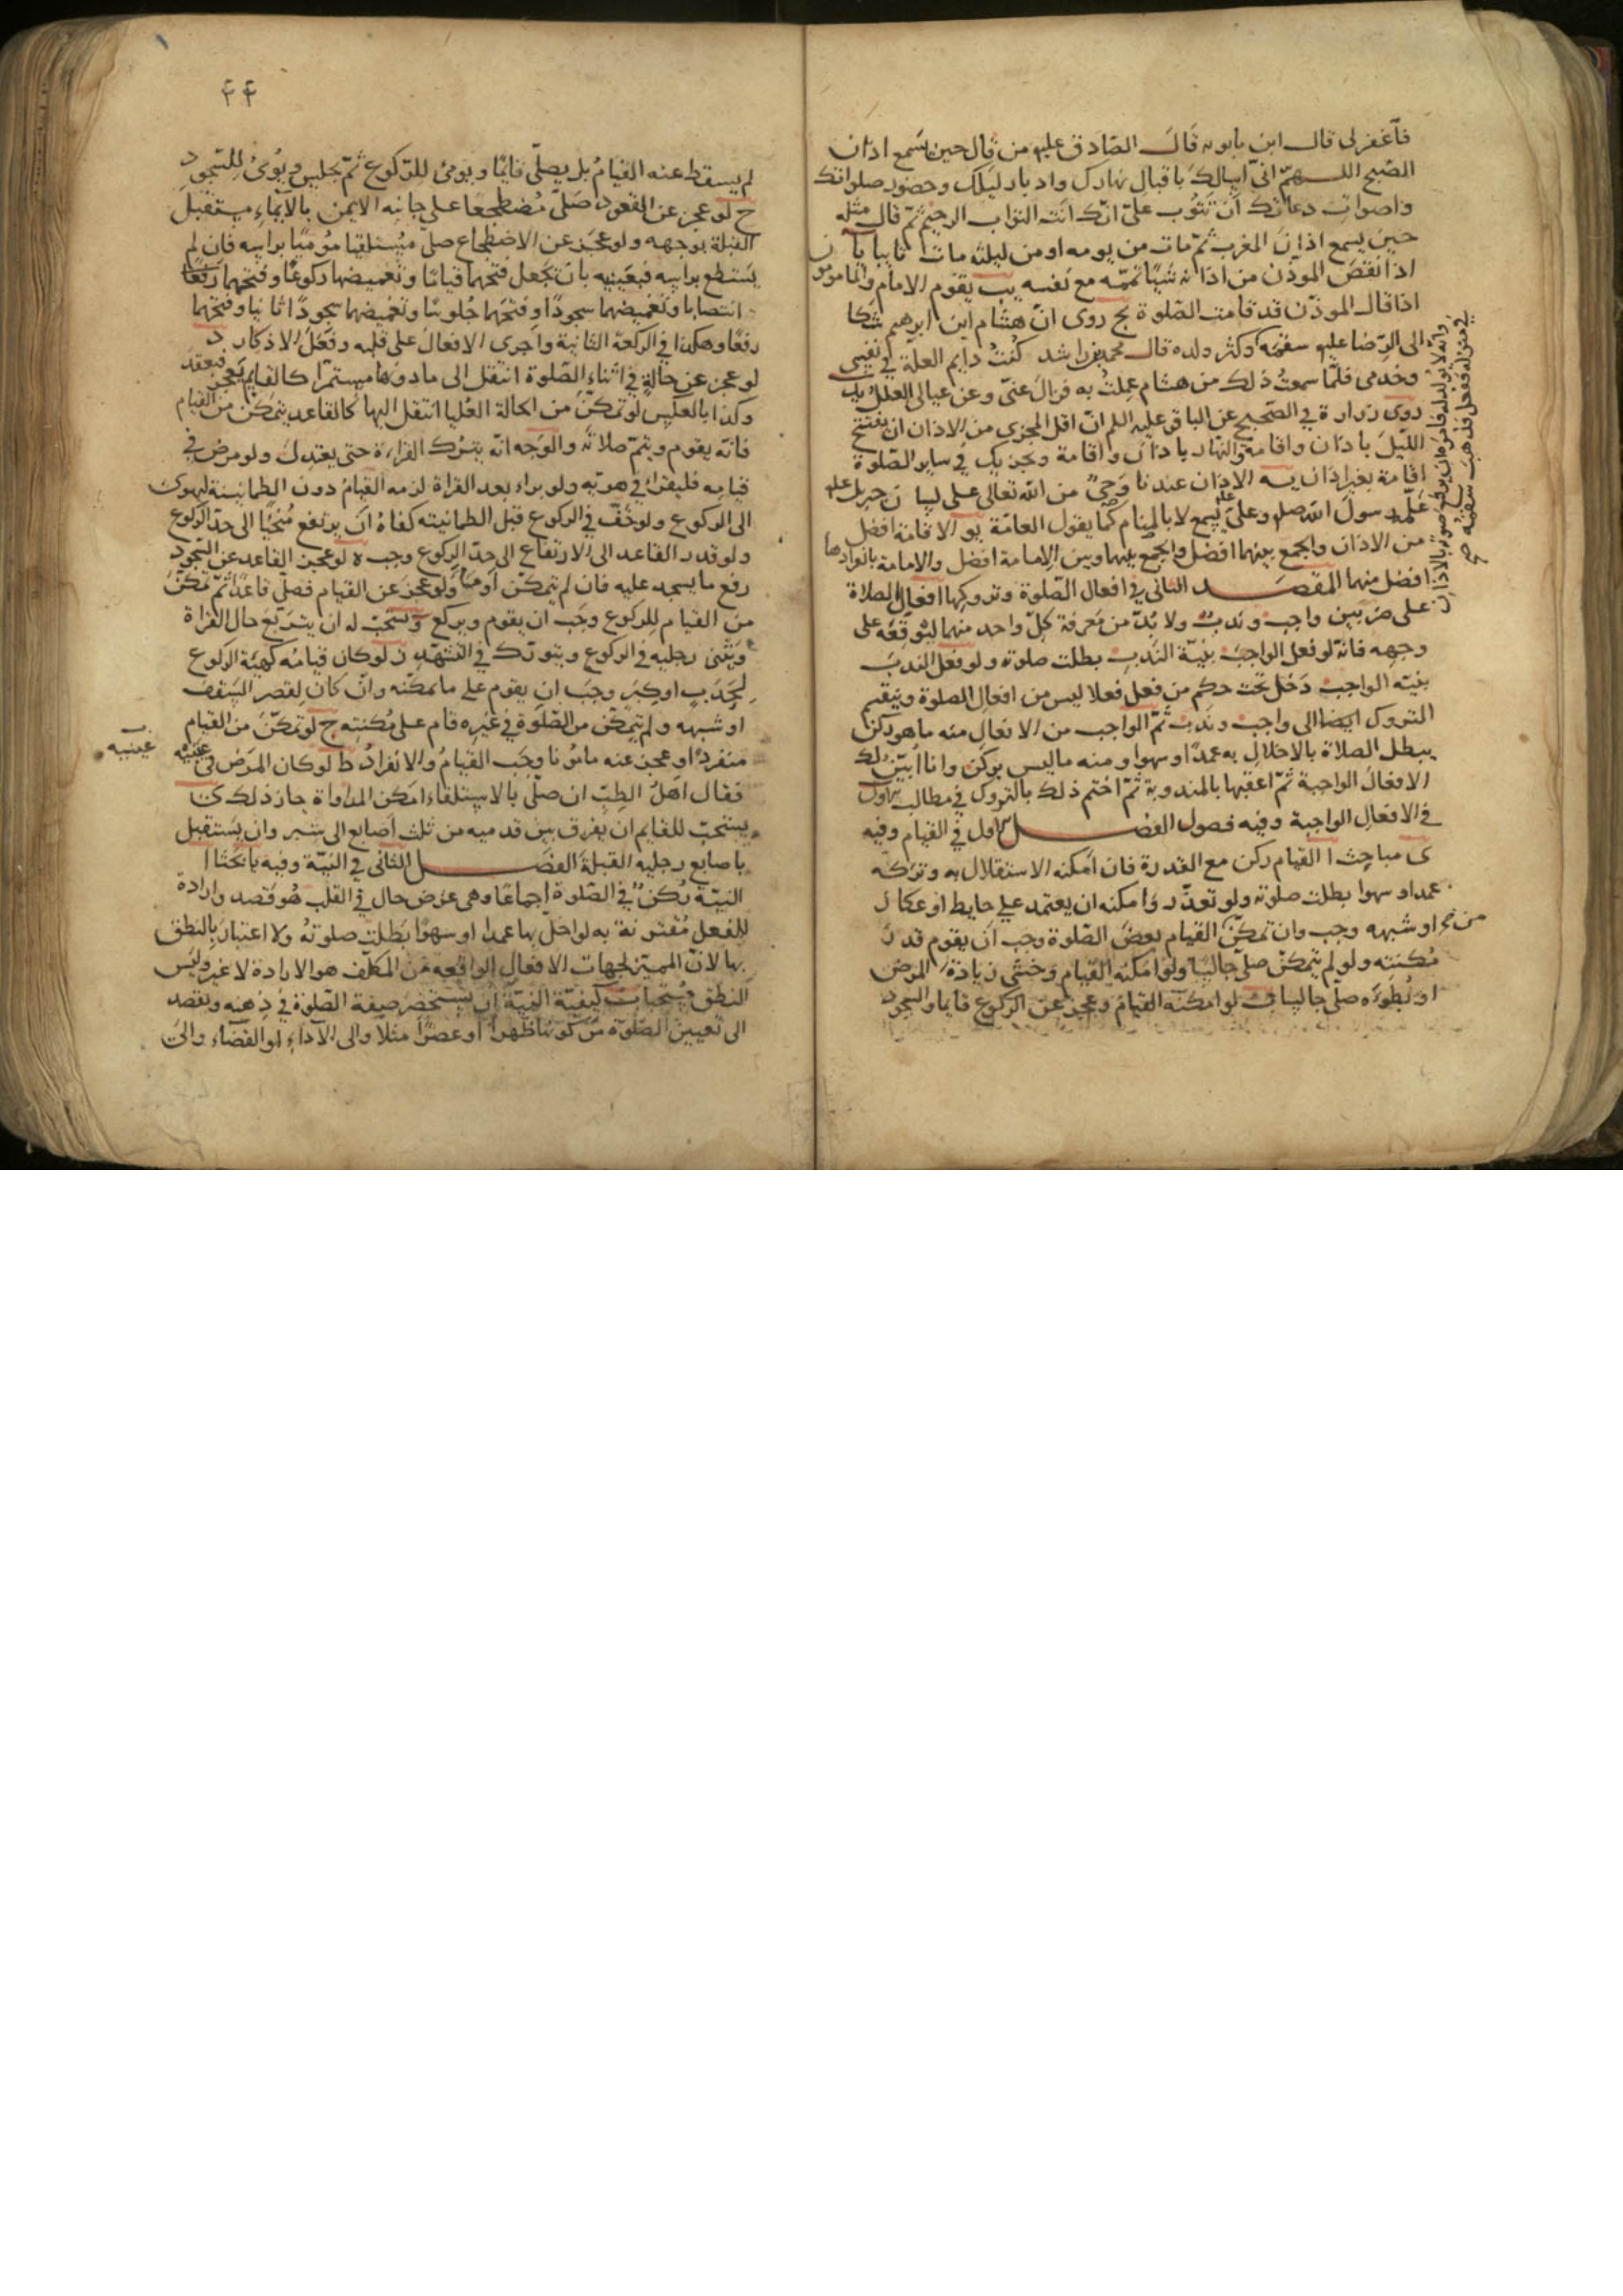 فاغفر لى قال ابن بابويه قال الصادق عليه من قال حين يسمع اذان
الصبح اللهم انى اسالك باقبال نهارك وادبار ليلك وحضور صلواتك
واصوات دعاتك ان تتوب على انك انت التواب الرحيم ثم قال مثله
حين يسمع اذان المغرب ثم مات من يومه او من ليلته مات تايبا يا
اذا نقص الموذن من اذانه شيئا تممه مع نفسه يب يقوم الامام والمامومون
اذا قال الموذن قد قامت الصلوة يج روى ان هشام ابن ابرهيم شكا
الى الرضا عليه سقمه
وانه لا يولد له فامره ان يرفع صوته بالاذان
فى منزله ففعل فذهب سقمه
وكثر ولده قال محمد بن راشد كنت دايم العلة فى نفسى
وخدمى فلما سمعت ذلك من هشام عملت به فزال عنى وعن عيالى العلل يد
روى زرارة فى الصحيح عن الباقر عليه السلم ان اقل المجزى من الاذان ان يفتتح
الليل باذان واقامة والنهار باذان واقامة ويجزيك فى ساير الصلوة
اقامة بغير اذان يه الاذان عندنا وحى من الله تعالى على لسان جبريل عليه
علمه رسول الله صلى وعلى يسمع لا بالمنام كما يقول العامة يو الاقامة افضل
من الاذان والجمع بينهما افضل والجمع بينهما وبين الامامة افضل والامامة بانفرادها
افضل منهما المقصد الثانى فى افعال الصلوة وتروكها افعال الصلاة
على ضربين واجب وندب ولا بد من معرفة كل واحد منهما ليوقعه على
وجهه فانه لو فعل الواجب بنية الندب بطلت صلوته ولو فعل الندب
بنية الواجب دخل تحت حكم من فعل فعلا ليس من افعال الصلوة وينقسم
التروك ايضا الى واجب وندب ثم الواجب من الافعال منه ما هو ركن
يبطل الصلاة بالاخلال به عمدا وسهوا ومنه ما ليس بركن وانا ابين لك
الافعال الواجبة ثم اعقبها بالمندوبة ثم اختم ذلك بالتروك فى مطالب
فى الافعال الواجبة وفيه فصول الفصل الاول فى القيام وفيه
ى مباحث ا القيام ركن مع القدرة فان امكنه الاستقلال به وتركه
عمدا وسهوا بطلت صلوته ولو تعذر وامكنه ان يعتمد على حايط او عكاز
او شبهه وجب وان تمكن القيام بعض الصلوة وجب ان يقوم قدر
مكنته ولو لم يتمكن صلى جالسا ولو امكنه القيام وخشى زيادة المرض
او بطوءه صلى جالسا ب لو امكنه القيام وعجز عن الركوع قايما والسجود
٤٤
لم يسقط عنه القيام بل يصلى قايما ويومى للركوع ثم يجلس ويومى للسجود
ج لو عجز عن القعود صلى مضطجعا على جانبه الايمن بالايماء مستقبل
القبلة بوجهه ولو عجز عن الاضطجاع صلى مستلقيا مؤميا براسه فان لم
يستطع براسه فبعينيه بان تجعل فتحهما قياما وتغميضهما ركوعا وفتحهما رفعا
انتصابا وتغميضهما سجودا وفتحهما جلوسا وتغميضهما سجودا ثانيا وفتحهما
رفعا وهكذا فى الركعة الثانية واجرى الافعال على قلبه وفعل الاذكار د
لو عجز عن حالة فى اثناء الصلوة انتقل الى ما دونها مستمرا كالقايم يعجز فيقعد
وكذا بالعكس لو تمكن من الحالة العليا انتقل اليها كالقاعد يتمكن من القيام
فانه يقوم ويتم صلاته والوجه انه يترك القراءة حتى يعتدل ولو مرض فى
قيامه فليقرا فى هويه ولو براء بعد القراة لزمه القيام دون الطمانينة ليهوى
الى الركوع ولو خف فى الركوع قبل الطمانينه كفاه ان يرتفع منحنيا الى حد الركوع
ولو قدر القاعد الى الارتفاع الى حد الركوع وجب ه لو عجز القاعد عن السجود
رفع ما يسجد عليه فان لم يتمكن اومأ ولو عجز عن القيام فصلى قاعدا ثم تمكن
من القيام للركوع وجب ان يقوم ويركع و يستحب له ان يتربع حال القراة
ويثنى رجليه فى الركوع ويتورك فى التشهد ز لو كان قيامه كهيئة الركوع
لحدب او كبر وجب ان يقوم على ما يمكنه وان كان لقصر السقف
او شبهه ولم يتمكن من الصلوة فى غيره قام على مكنته ح لو تمكن من القيام
منفردا وعجز عنه مامونا وجب القيام والانفراد ط لو كان المرض فى عينيه
عينيه
فقال اهل الطب ان صلى بالاستلقاء امكن المداواة جاز ذلك ى
يستحب للقايم ان يفرق بين قدميه من ثلث اصابع الى شبر وان يستقبل
باصابع رجليه القبلة الفصل الثانى فى النية وفيه بابحثا ا
النية ركن فى الصلوة اجماعا وهى عرض حال فى القلب هو قصد وارادة
للفعل مقترنة به لو اخل بها عمدا او سهوا بطلت صلوته ولا اعتبار بالنطق
بها لان المميز لجهات الافعال الواقعه من المكلف هو الارادة لا غير وليس
النطق مستحبا ب كيفية النية ان يستحضر صفة الصلوة فى ذهنه ويقصد
الى تعيين الصلوة من كونها ظهرا او عصرا مثلا والى الاداء او القضاء والى